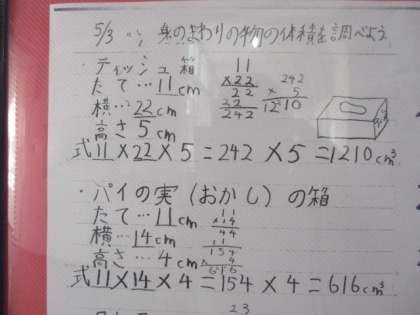 5/3 身のまわりの物の体積を調べよう
・ティッシュ箱
たて…11cm
横…22cm
高さ5cm
11
×22
22
22
242
242
× 5
1210
式11×22×5=242×5=1210cm³
・パイの実(おかし)の箱
たて…11cm
横…14cm
高さ…4cm
11
×14
44
11
154
× 4
616
式11×14×4=154×4=616cm³
23